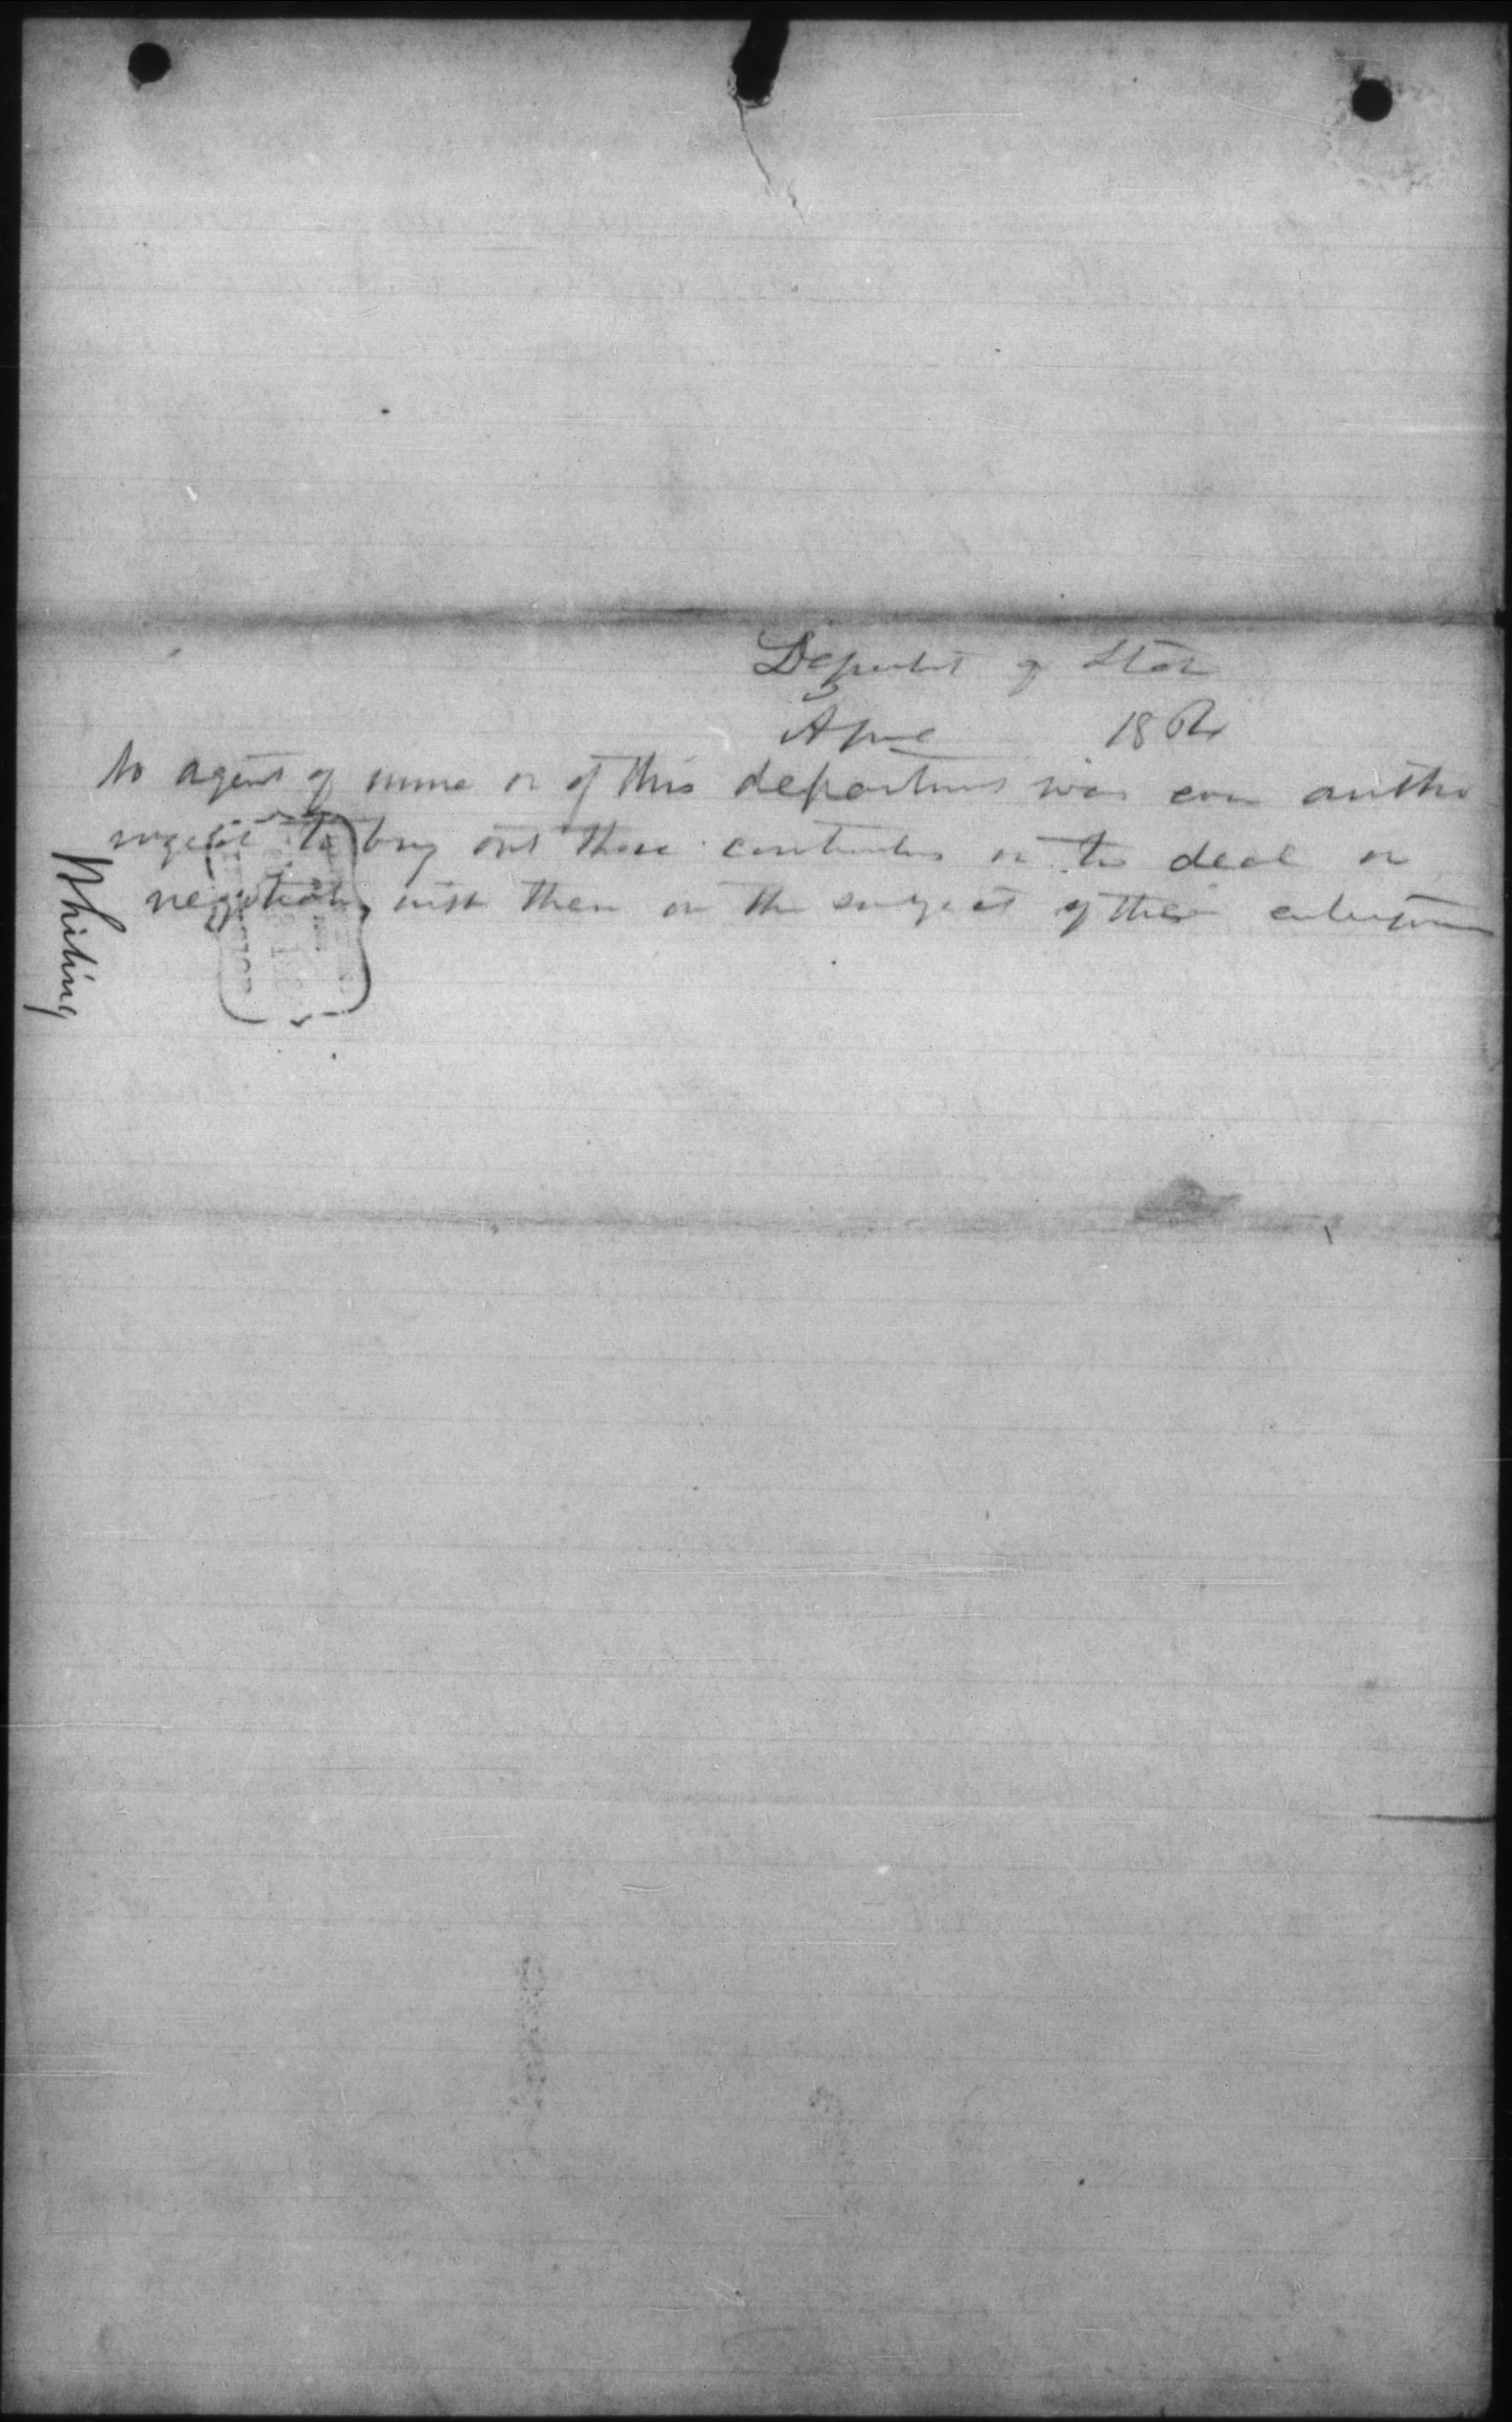 Department of State
April 1862
No agent of mine or of this department was ever autho
rized to buy out these contractors or to deal or
negotiate with them on the subject of their enterprise
Whiting